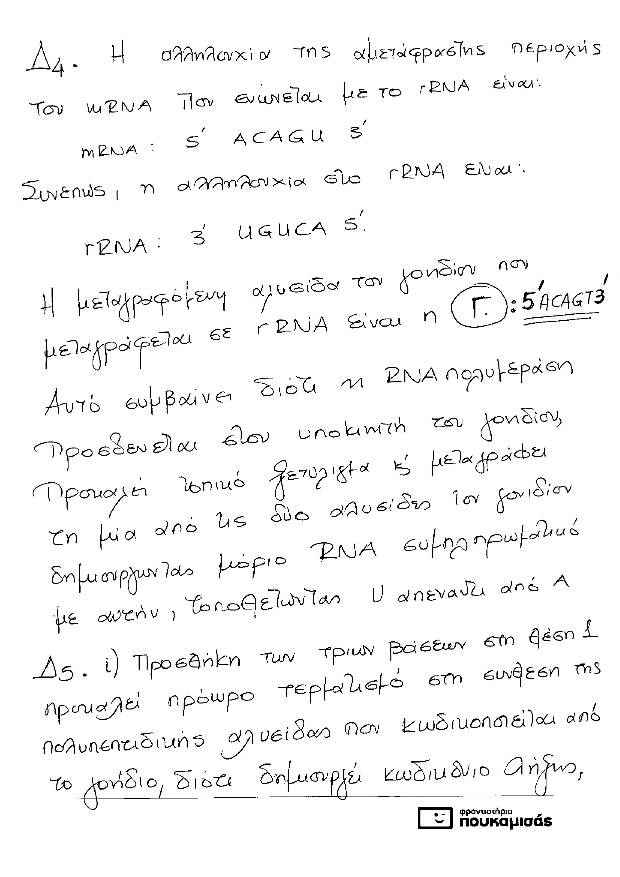 Δ4. Η αλληλουχία της αμετάφραστης περιοχής
του mRNA που ενώνεται με το rRNA είναι:
mRNA: 5' ACAGU 3'
Συνεπώς, η αλληλουχία στο rRNA είναι:
rRNA: 3' UGUCA 5'.
Η μεταγραφόμενη αλυσίδα του γονιδίου που
μεταγράφεται σε rRNA είναι η Γ. : 5'ACAGT3'
Αυτό συμβαίνει διότι η RNA πολυμεράση
προσδένεται στον υποκινητή του γονιδίου,
προκαλεί τοπικό ξετύλιγμα κ' μεταγράφει
τη μία από τις δύο αλυσίδες του γονιδίου
δημιουργώντας μόριο RNA συμπληρωματικό
με αυτήν, τοποθετώντας U απέναντι από A
Δ5. i) Προσθήκη των τριων βάσεων στη θέση 1
προκαλεί πρόωρο τερματισμό στη συνθεση της
πολυπεπτιδικής αλυσείδας που κωδικοποιείται από
το γονίδιο, διότι δημιουργεί κωδικόνιο λήξης,
φροντιστήρια
πουκαμισάς